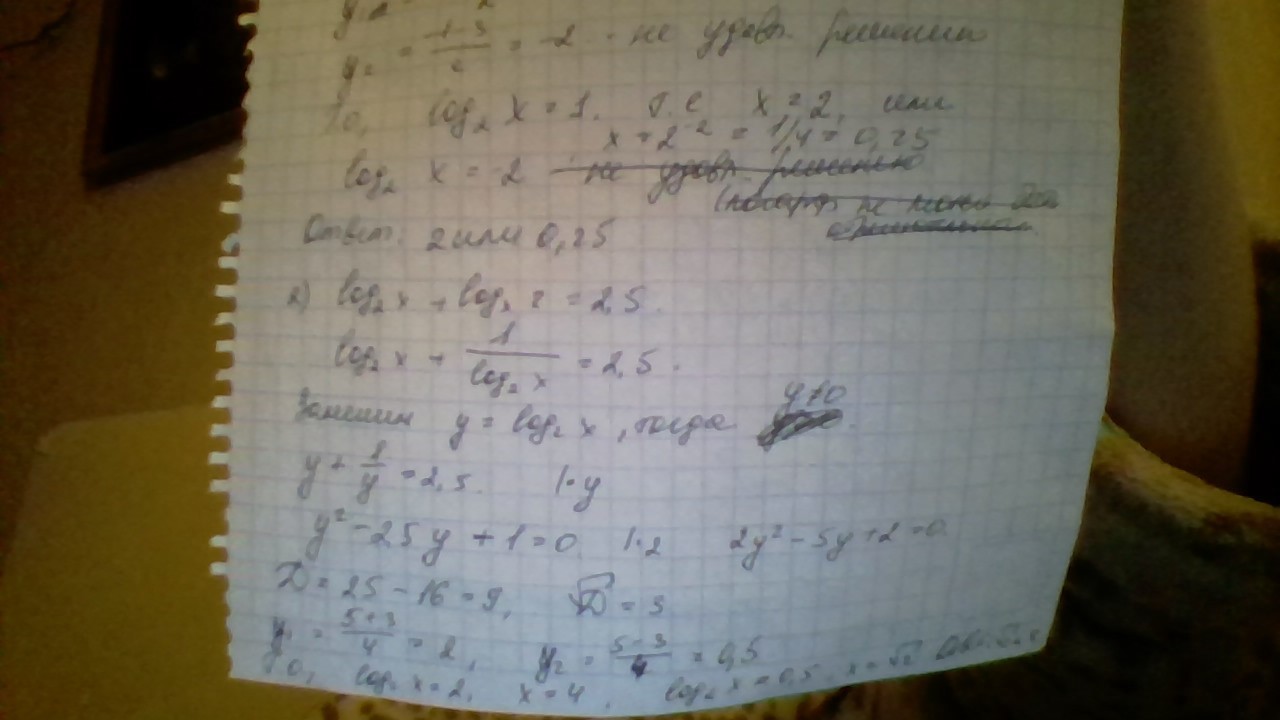 y₂ = (-1-3)/2 = -2 - не удовл. решению
То, log₂ x = 1. т.е x = 2, или
x = 2⁻² = 1/4 = 0,25
log₂ x = -2 не удовл. решению
Ответ. 2 или 0,25
2) log₂ x + logₓ 2 = 2,5.
log₂ x + 1/(log₂ x) = 2,5.
Заменим y = log₂ x, тогда y≠0
y + 1/y = 2,5. |·y
y² - 2,5y + 1 = 0 |·2 2y² - 5y + 2 = 0
D = 25 - 16 = 9, √D = 3
y₁ = (5+3)/4 = 2, y₂ = (5-3)/4 = 0,5
То, log₂ x = 2, x = 4, log₂ x = 0,5, x = √2